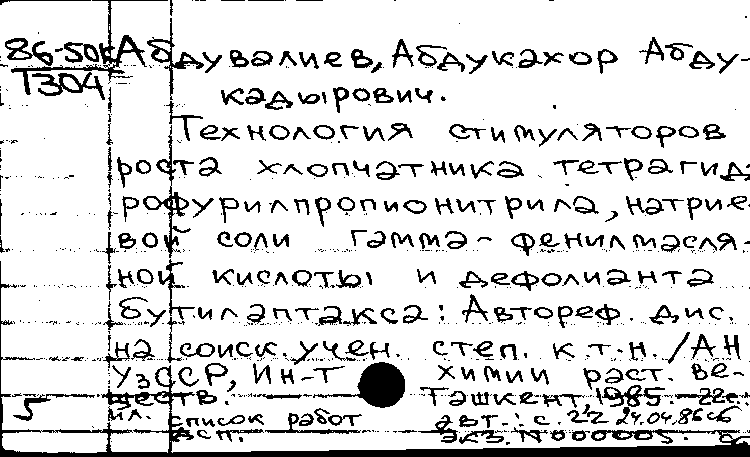 86-50к Абдувалиев, Абдукахор Абду-
Т304
кадырович.
Технология стимуляторов
роста хлопчатника тетрагид-
рофурилпропионитрила, натрие-
вой соли гамма-фенилмасля-
ной кислоты и дефолианта
бутилаптакса: Автореф. дис.
на соиск. учен. степ. к.т.н. /АН
УзССР, Ин-т химии раст. ве-
ществ. Ташкент, 1985. - 22с.:
ил. список работ авт.: с. 24.04.86
5 всп. экз. N000005.